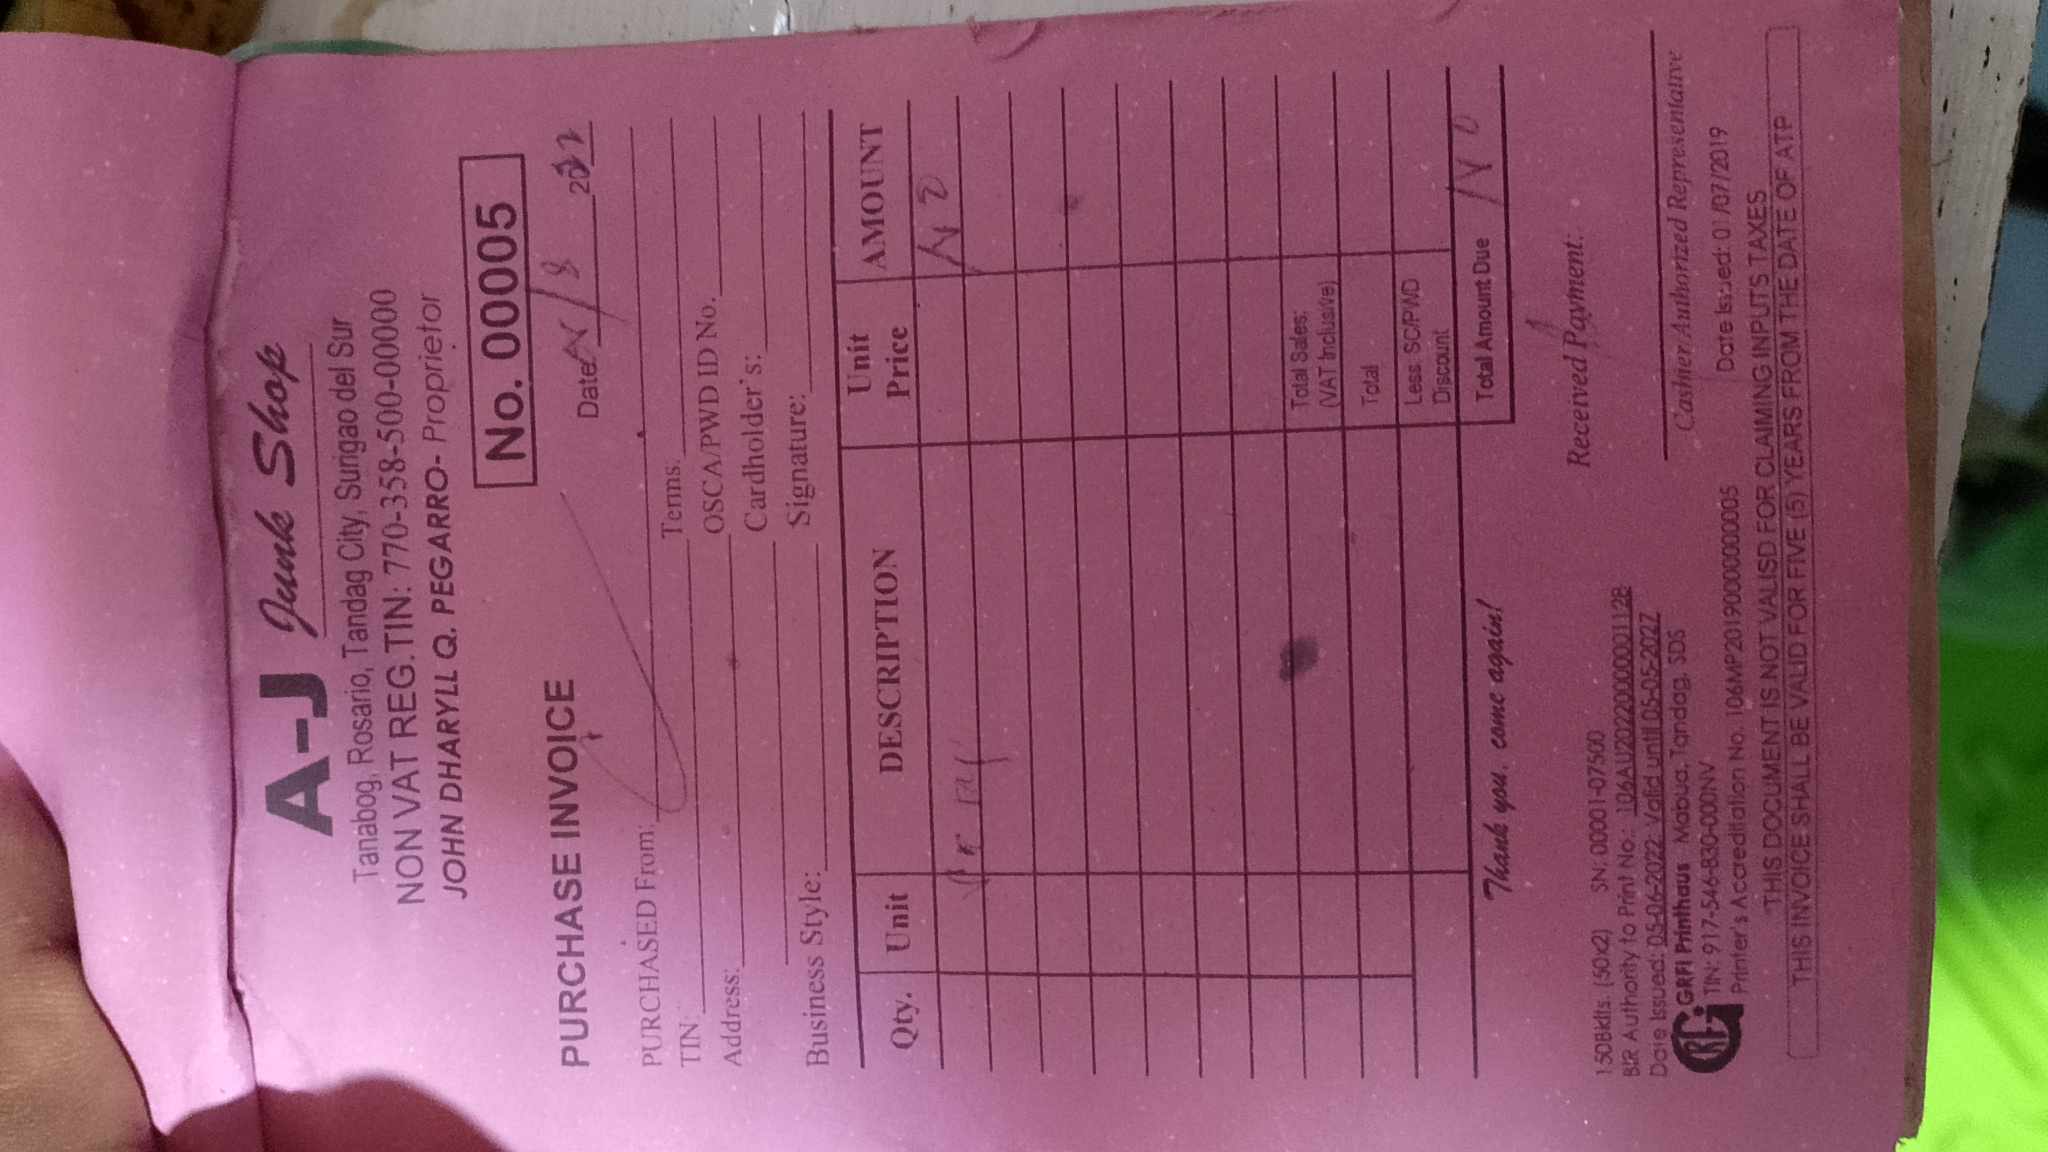 A-J Junk Shop
Tanabog, Rosario, Tandag City, Surigao del Sur
NON VAT REG.TIN: 770-358-500-00000
JOHN DHARYLL Q. PEGARRO- Proprietor
No. 00005
PURCHASE INVOICE
Date: 8 2022
PURCHASED From:
TIN: Terms:
Address: OSCA/PWD ID No.
Cardholder's:
Business Style: Signature:
Qty. Unit DESCRIPTION Unit Price AMOUNT
Total Sales:
(VAT Inclusive)
Total
Less: SC/PWD
Discount
Total Amount Due
Thank you, come again!
Received Payment:
150Bklts. (50x2) SN: 00001-07500
BIR Authority to Print No.: 106AU20220000001128
Date Issued: 05-06-2022; Valid until 05-05-2027
GRFI Printhaus Mabua, Tandag, SDS
TIN: 917-546-830-000NV
Cashier/Authorized Representative
Printer's Accreditation No. 106MP20190000000005 Date Issued: 01/07/2019
"THIS DOCUMENT IS NOT VALISD FOR CLAIMING INPUTS TAXES
THIS INVOICE SHALL BE VALID FOR FIVE (5) YEARS FROM THE DATE OF ATP